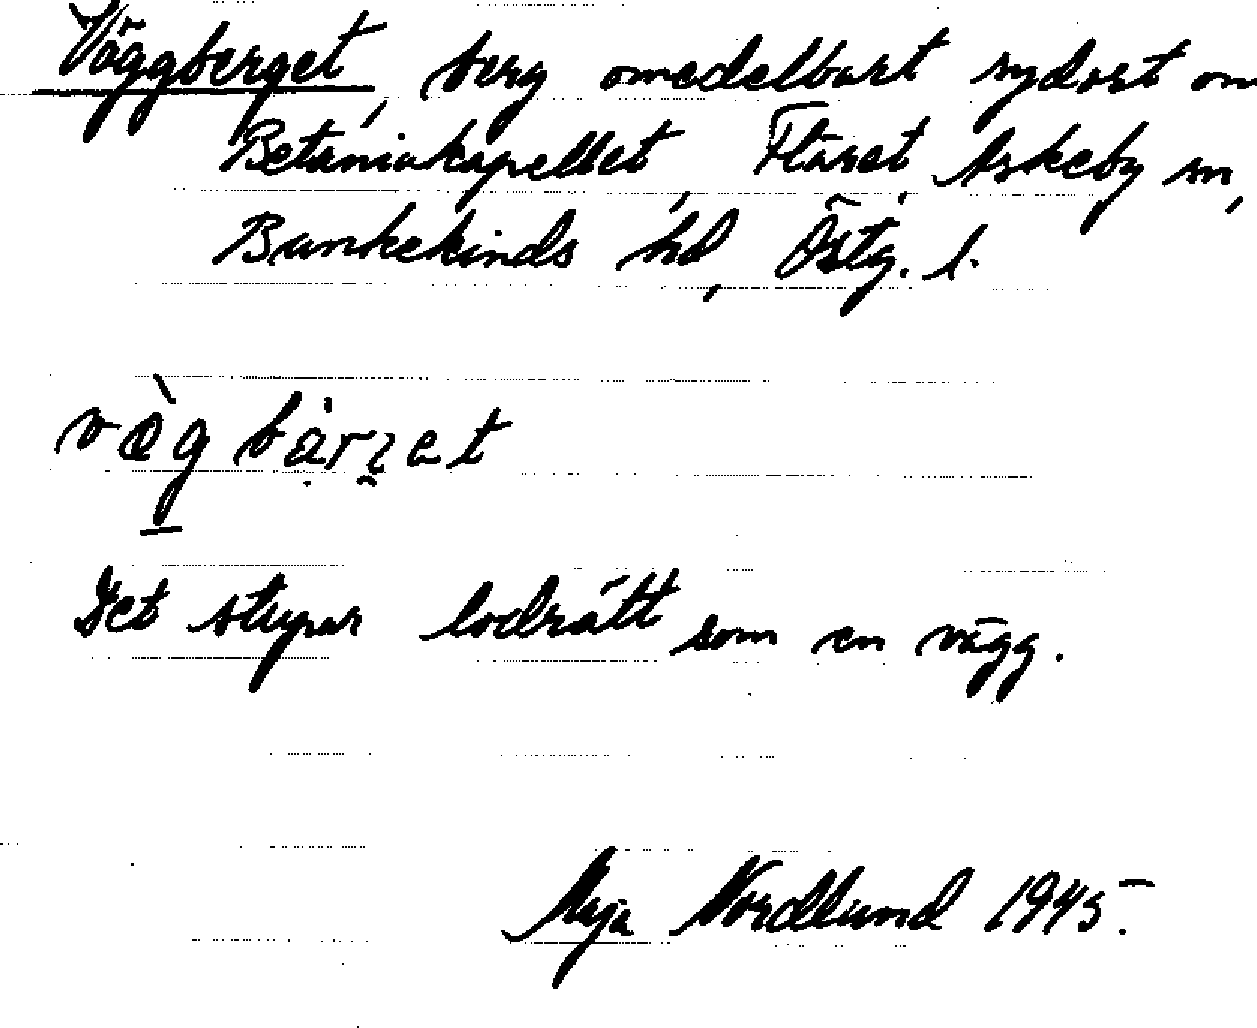 Väggberget, berg omedelbart sydost om
Betaniakapellet, Flaret, Askeby sn,
Bankekinds hd, Östg. l.
vägbärjet
Det stupar lodrätt som en vägg.
Maja Nordlund 1945.